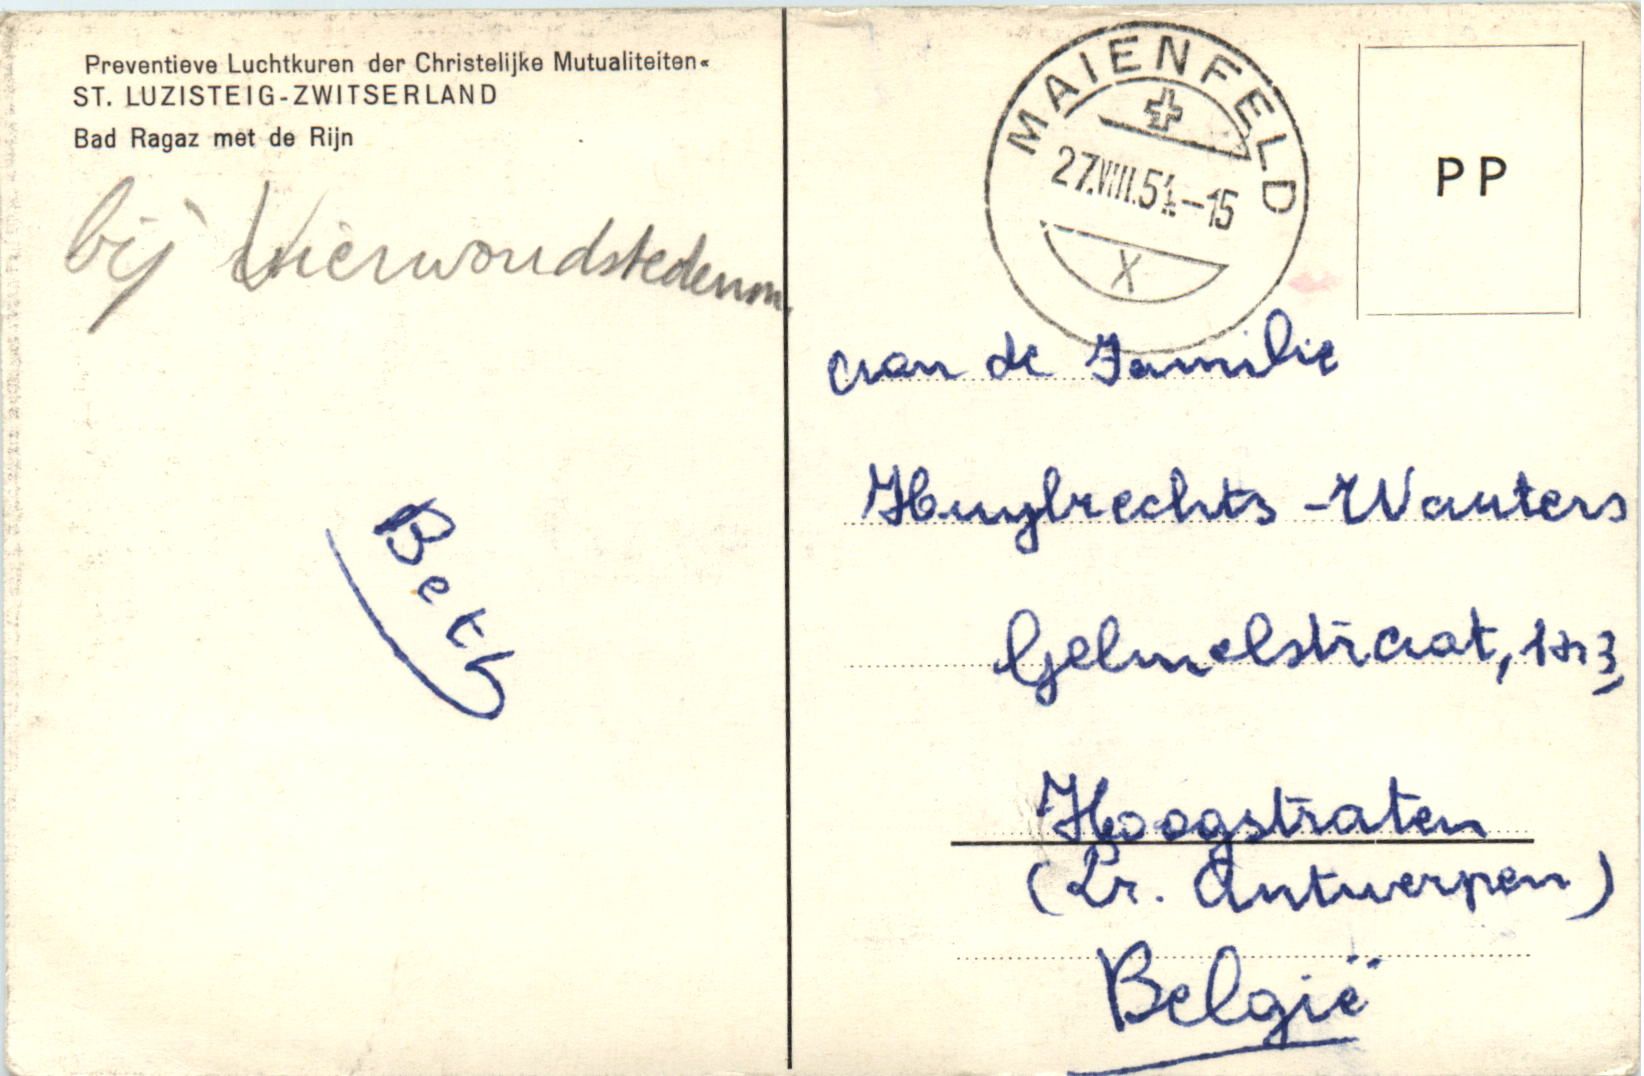 Preventieve Luchtkuren der Christelijke Mutualiteiten«
ST. LUZISTEIG-ZWITSERLAND
Bad Ragaz met de Rijn
bij Vierwoudstedenm.
Beth
MAIENFELD
27.VIII.51-15
X
PP
aan de Familie
Huybrechts-Wauters
Gelmelstraat, 123
Hoogstraten
(Pr. Antwerpen)
België